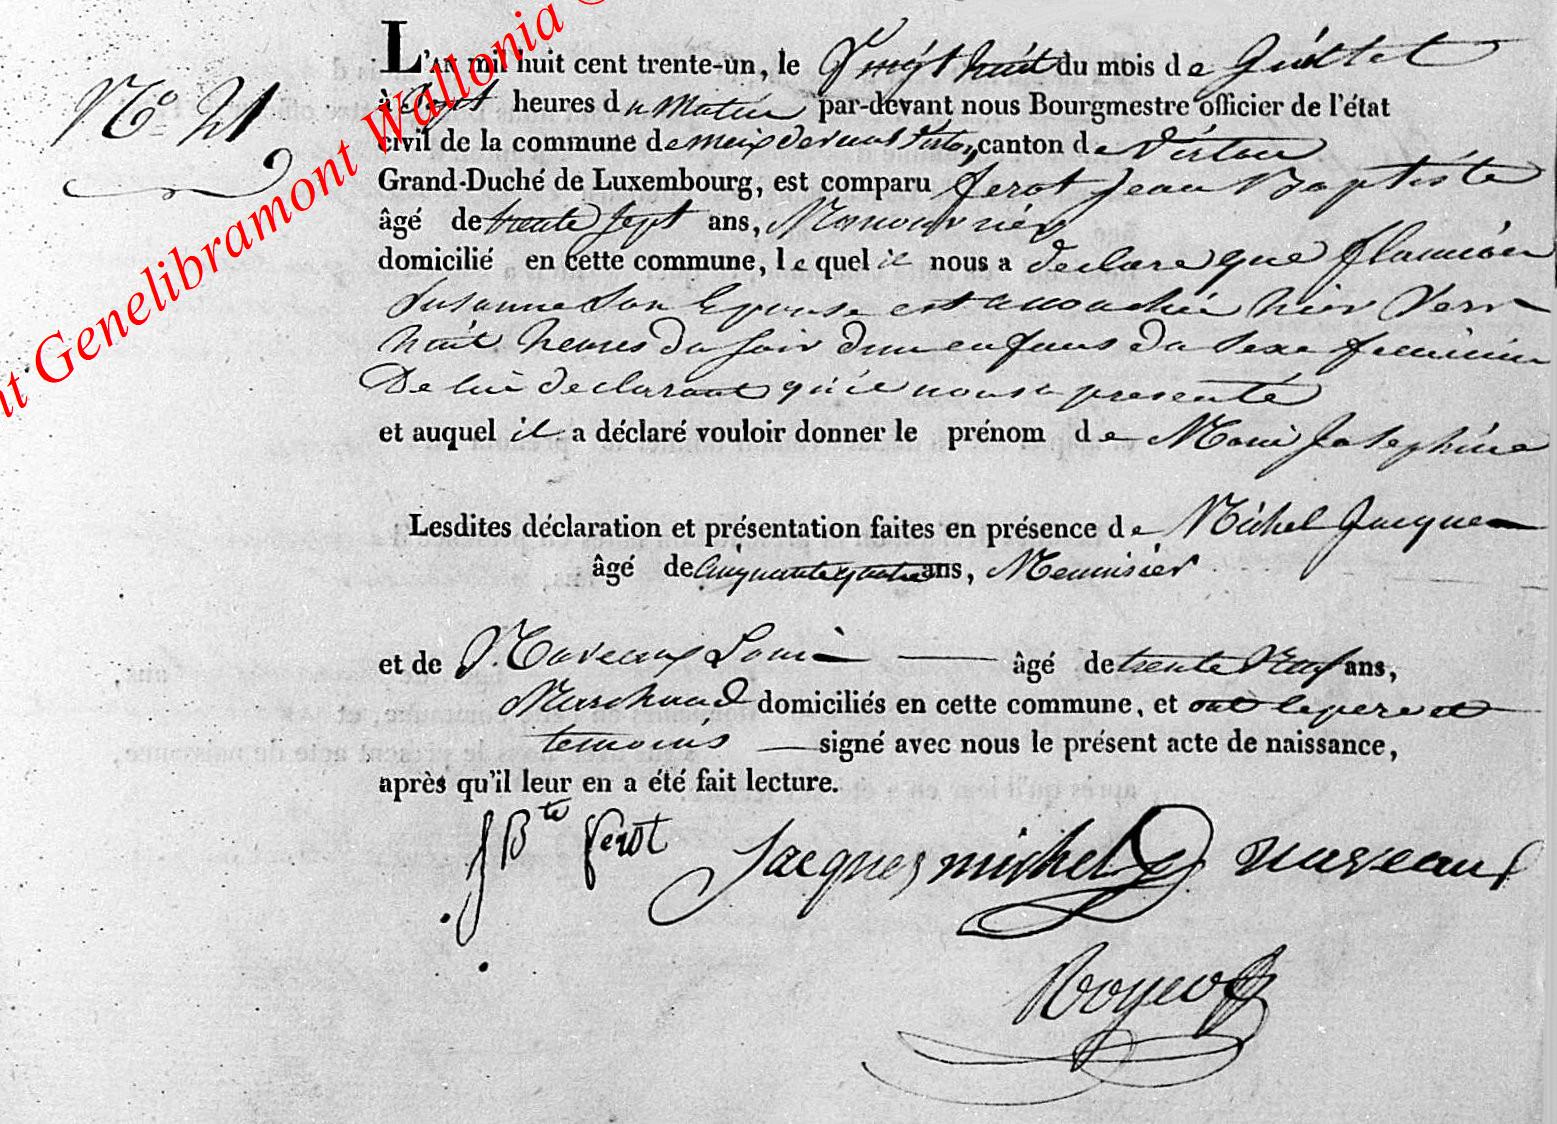 Genelibramont Wallonia
N.º 21
L'AN mil huit cent trente-un, le Vingt huit du mois de Juillet
à Sept heures du Matin par-devant nous Bourgmestre officier de l'état
civil de la commune de meix devant Virton, canton de Virton
Grand-Duché de Luxembourg, est comparu ferot Jean Baptiste
âgé de trente sept ans, Manouvrier
domicilié en cette commune, lequel il nous a declare que flamion
Susanne Son Epouse est accouchée hier vers
huit heures du soir d'un enfans du sexe feminin
De lui declarant qu'il nous a presenté
et auquel il a déclaré vouloir donner le prénom de Marie Josephine
Lesdites déclaration et présentation faites en présence de Michel Jacques
âgé de Cinquante quatre ans, Menuisier
et de Naveaux Louis âgé de trente Neuf ans,
Marchand domiciliés en cette commune, et ont le pere et
temoins signé avec nous le présent acte de naissance,
après qu'il leur en a été fait lecture.
J Bte ferot Jacques michel naveaux